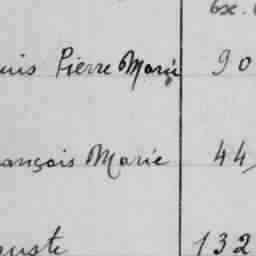 uis Pierre Marie 90
ançois Marie 44,
guste 132